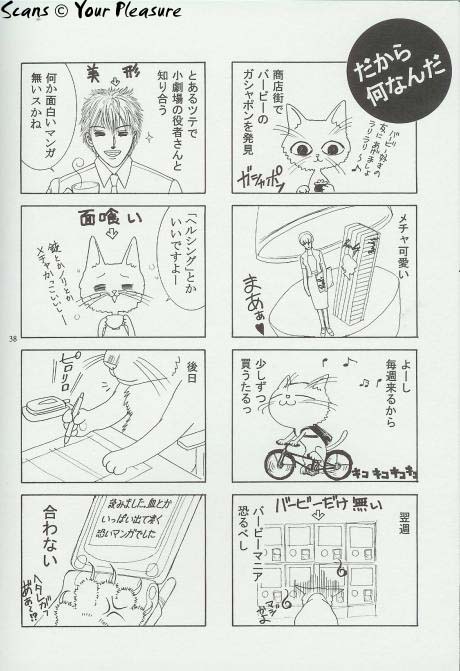 Scans © Your Pleasure
だから
何なんだ
商店街で
バービーの
ガシャポンを発見
バービー好きの
友にあげましょ
ラリラリ〜♪
ガシャポン
メチャ可愛い
まあぁ♥
よーし
毎週来るから
少しずつ
買うたるっ
キコキコキコキコ
翌週
バービーだけ無い
バービーマニア
恐るべし
マジかよ
とあるツテで
小劇場の役者さんと
知り合う
美形
何か面白いマンガ
無いスかね
「ヘルシング」とか
いいですよー
面喰い
銃とかノリとか
メチャかっこいいしー
38
後日
ピロリロ
読みました。血とか
いっぱい出て凄く
恐いマンガでした
合わない
ヘタレがっ
あぁ〜!?